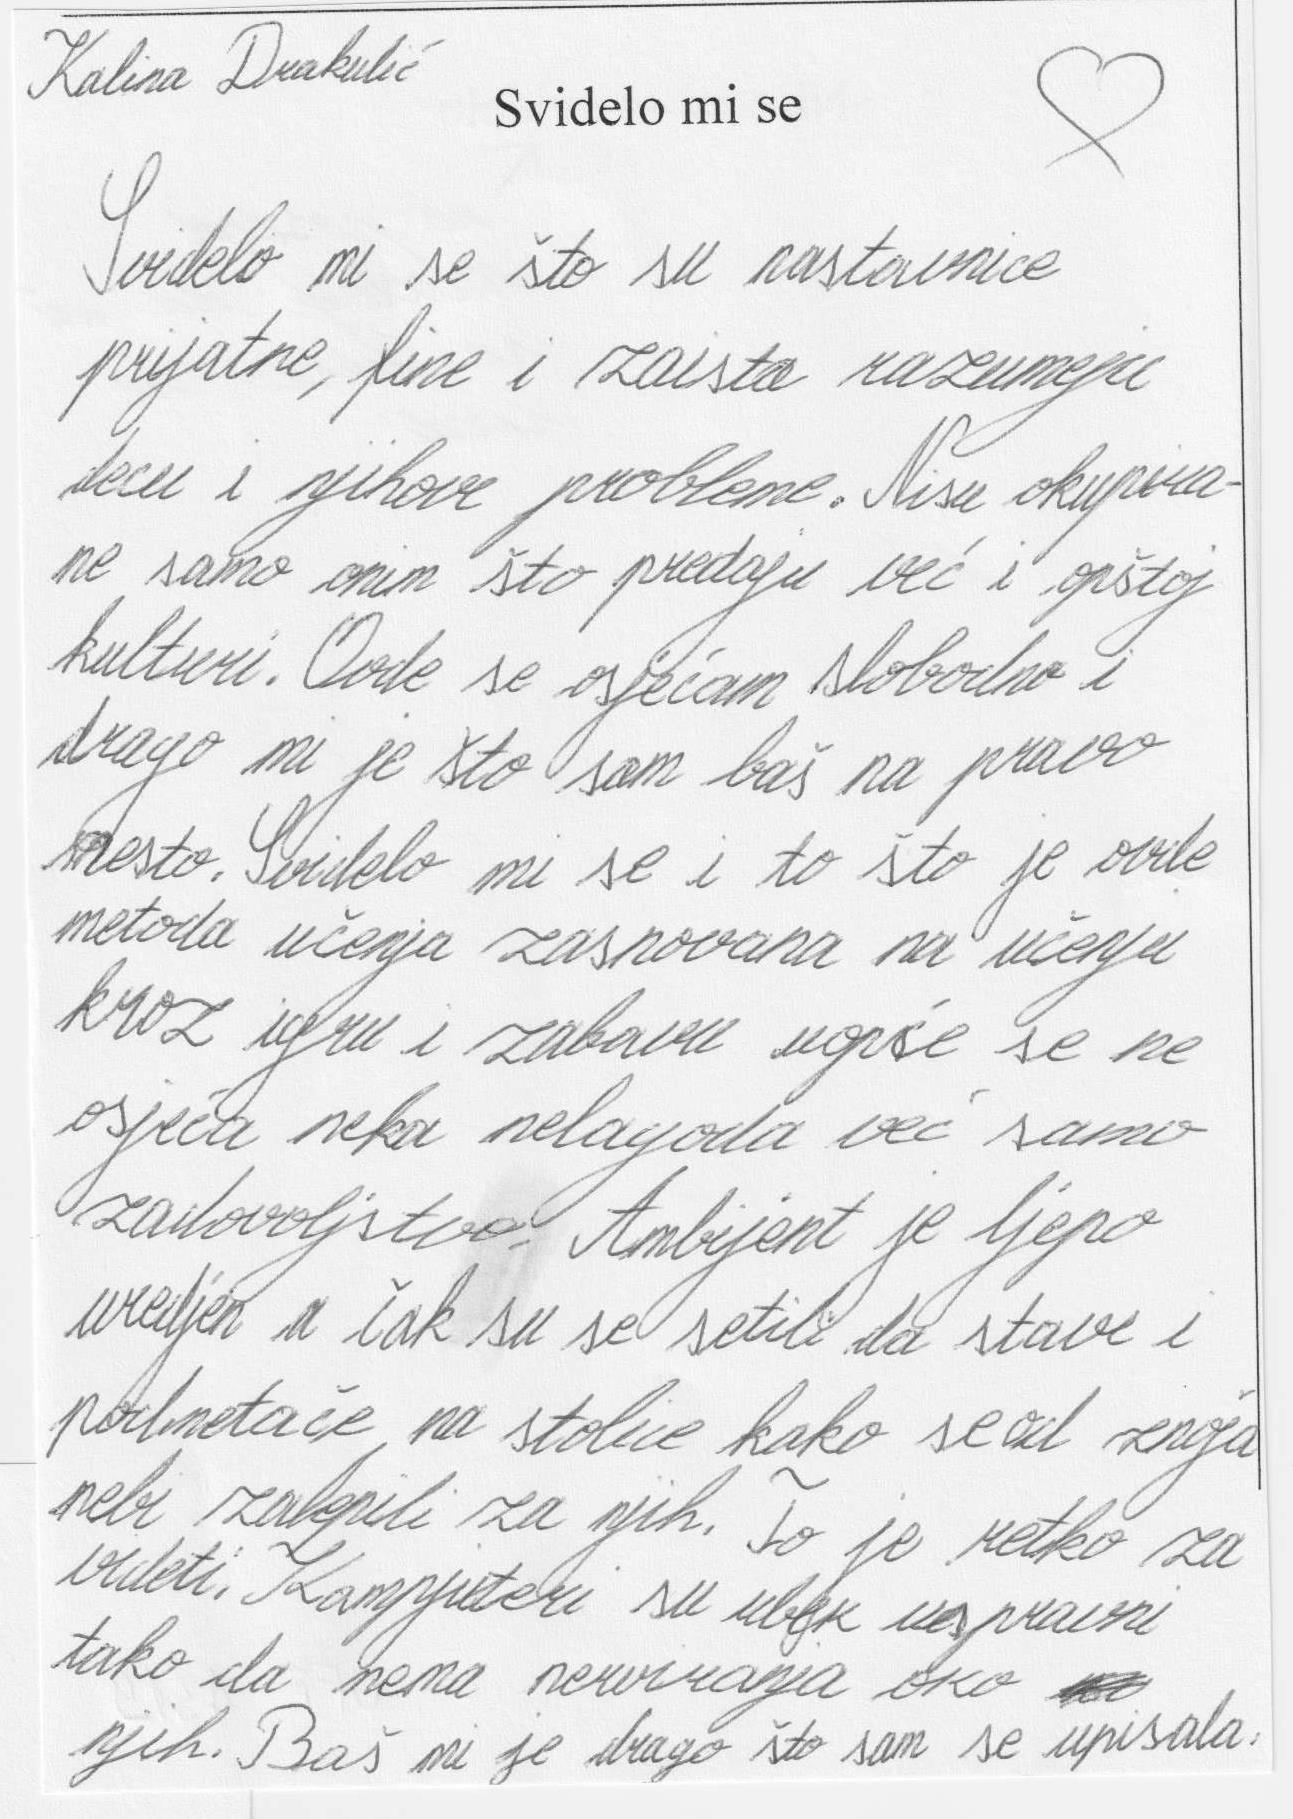 Kalina Drakulić
Svidelo mi se
Svidelo mi se što su nastavnice
prijatne, fine i zaista razumeju
decu i njihove probleme. Nisu okupira-
ne samo onim što predaju već i opštoj
kulturi. Ovde se osjećam slobodno i
drago mi je što sam baš na pravo
mesto. Svidelo mi se i to što je ovde
metoda učenja zasnovana na učenju
kroz igru i zabavu uopće se ne
osjeća neka nelagoda već samo
zadovoljstvo. Ambijent je ljepo
uredjen a čak su se setili da stave i
podmetače na stolice kako se od znoja
nebi zalepili za njih. To je retko za
videti. Kampjuteri su ubek uspravni
tako da nema nerviranja oko
njih. Baš mi je drago što sam se upisala.